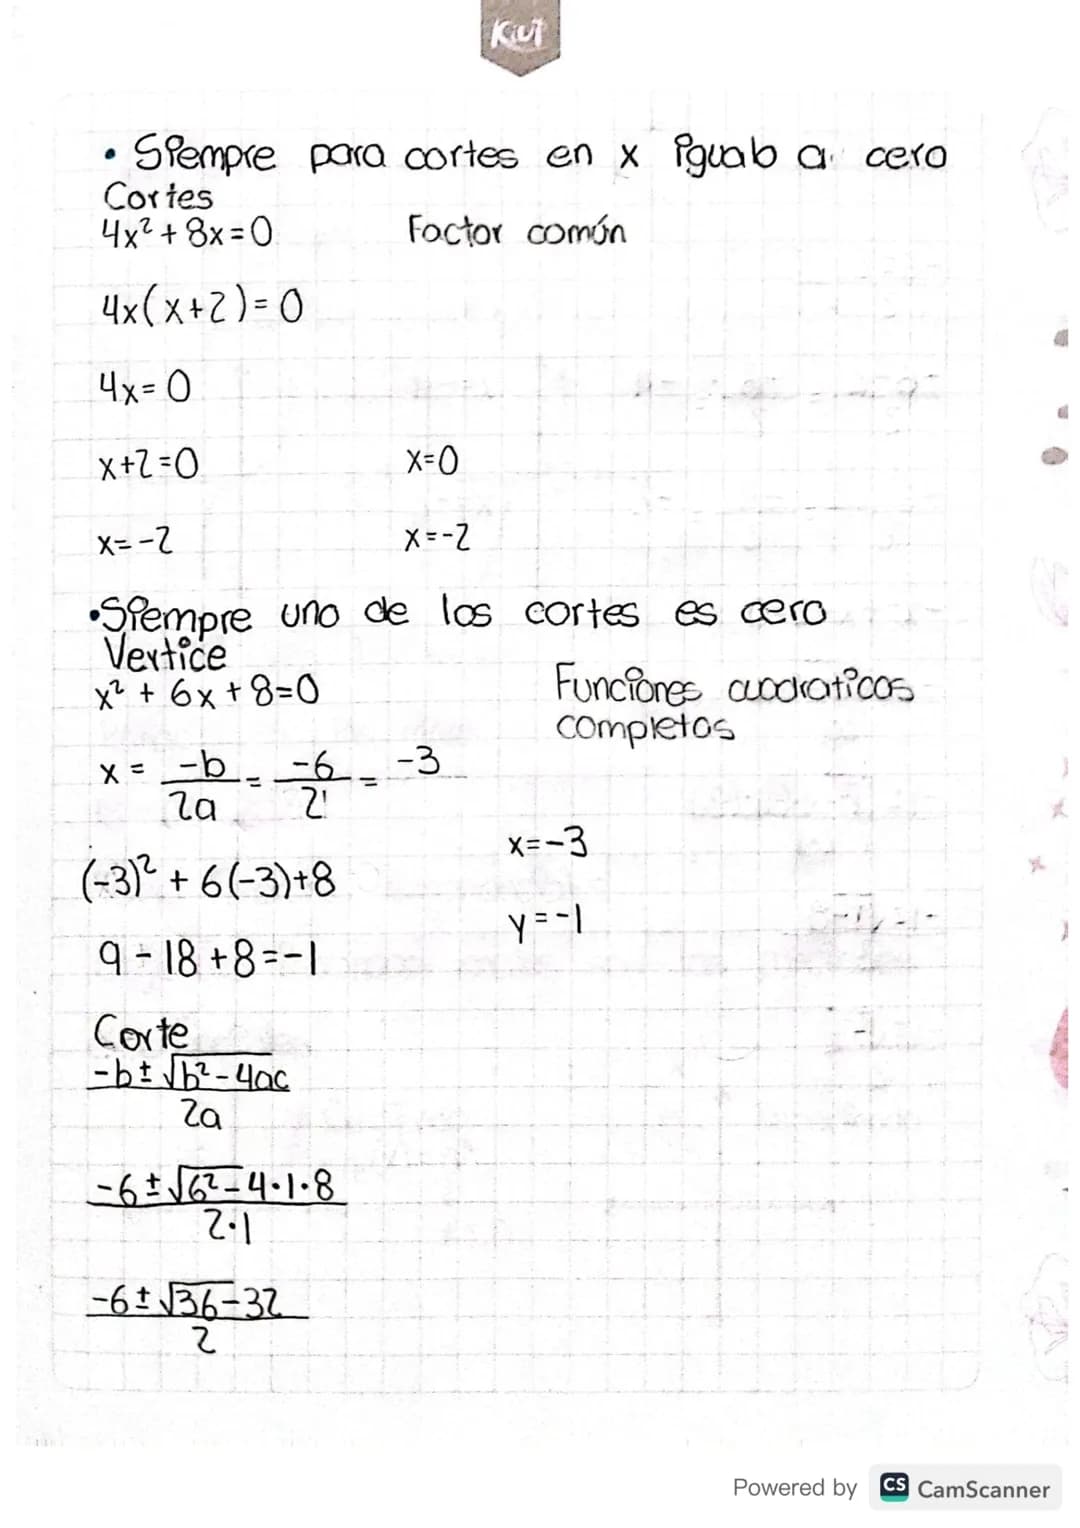 Kiut
• Siempre para cortes en x igualo a cero
Cortes
4x² + 8x = 0 Factor común
4x(x+2) = 0
4x = 0
x+2=0 x=0
x=-2 x=-2
•Siempre uno de los cortes es cero
Vertice
x² + 6x + 8=0 Funciones cuadraticas
completas
x = -b/2a = -6/2 = -3
x=-3
(-3)² + 6(-3)+8
y=-1
9 - 18 +8=-1
Corte
-b± √b²-4ac
2a
-6±√6²-4•1•8
2•1
-6± √36-32
2
Powered by CS CamScanner